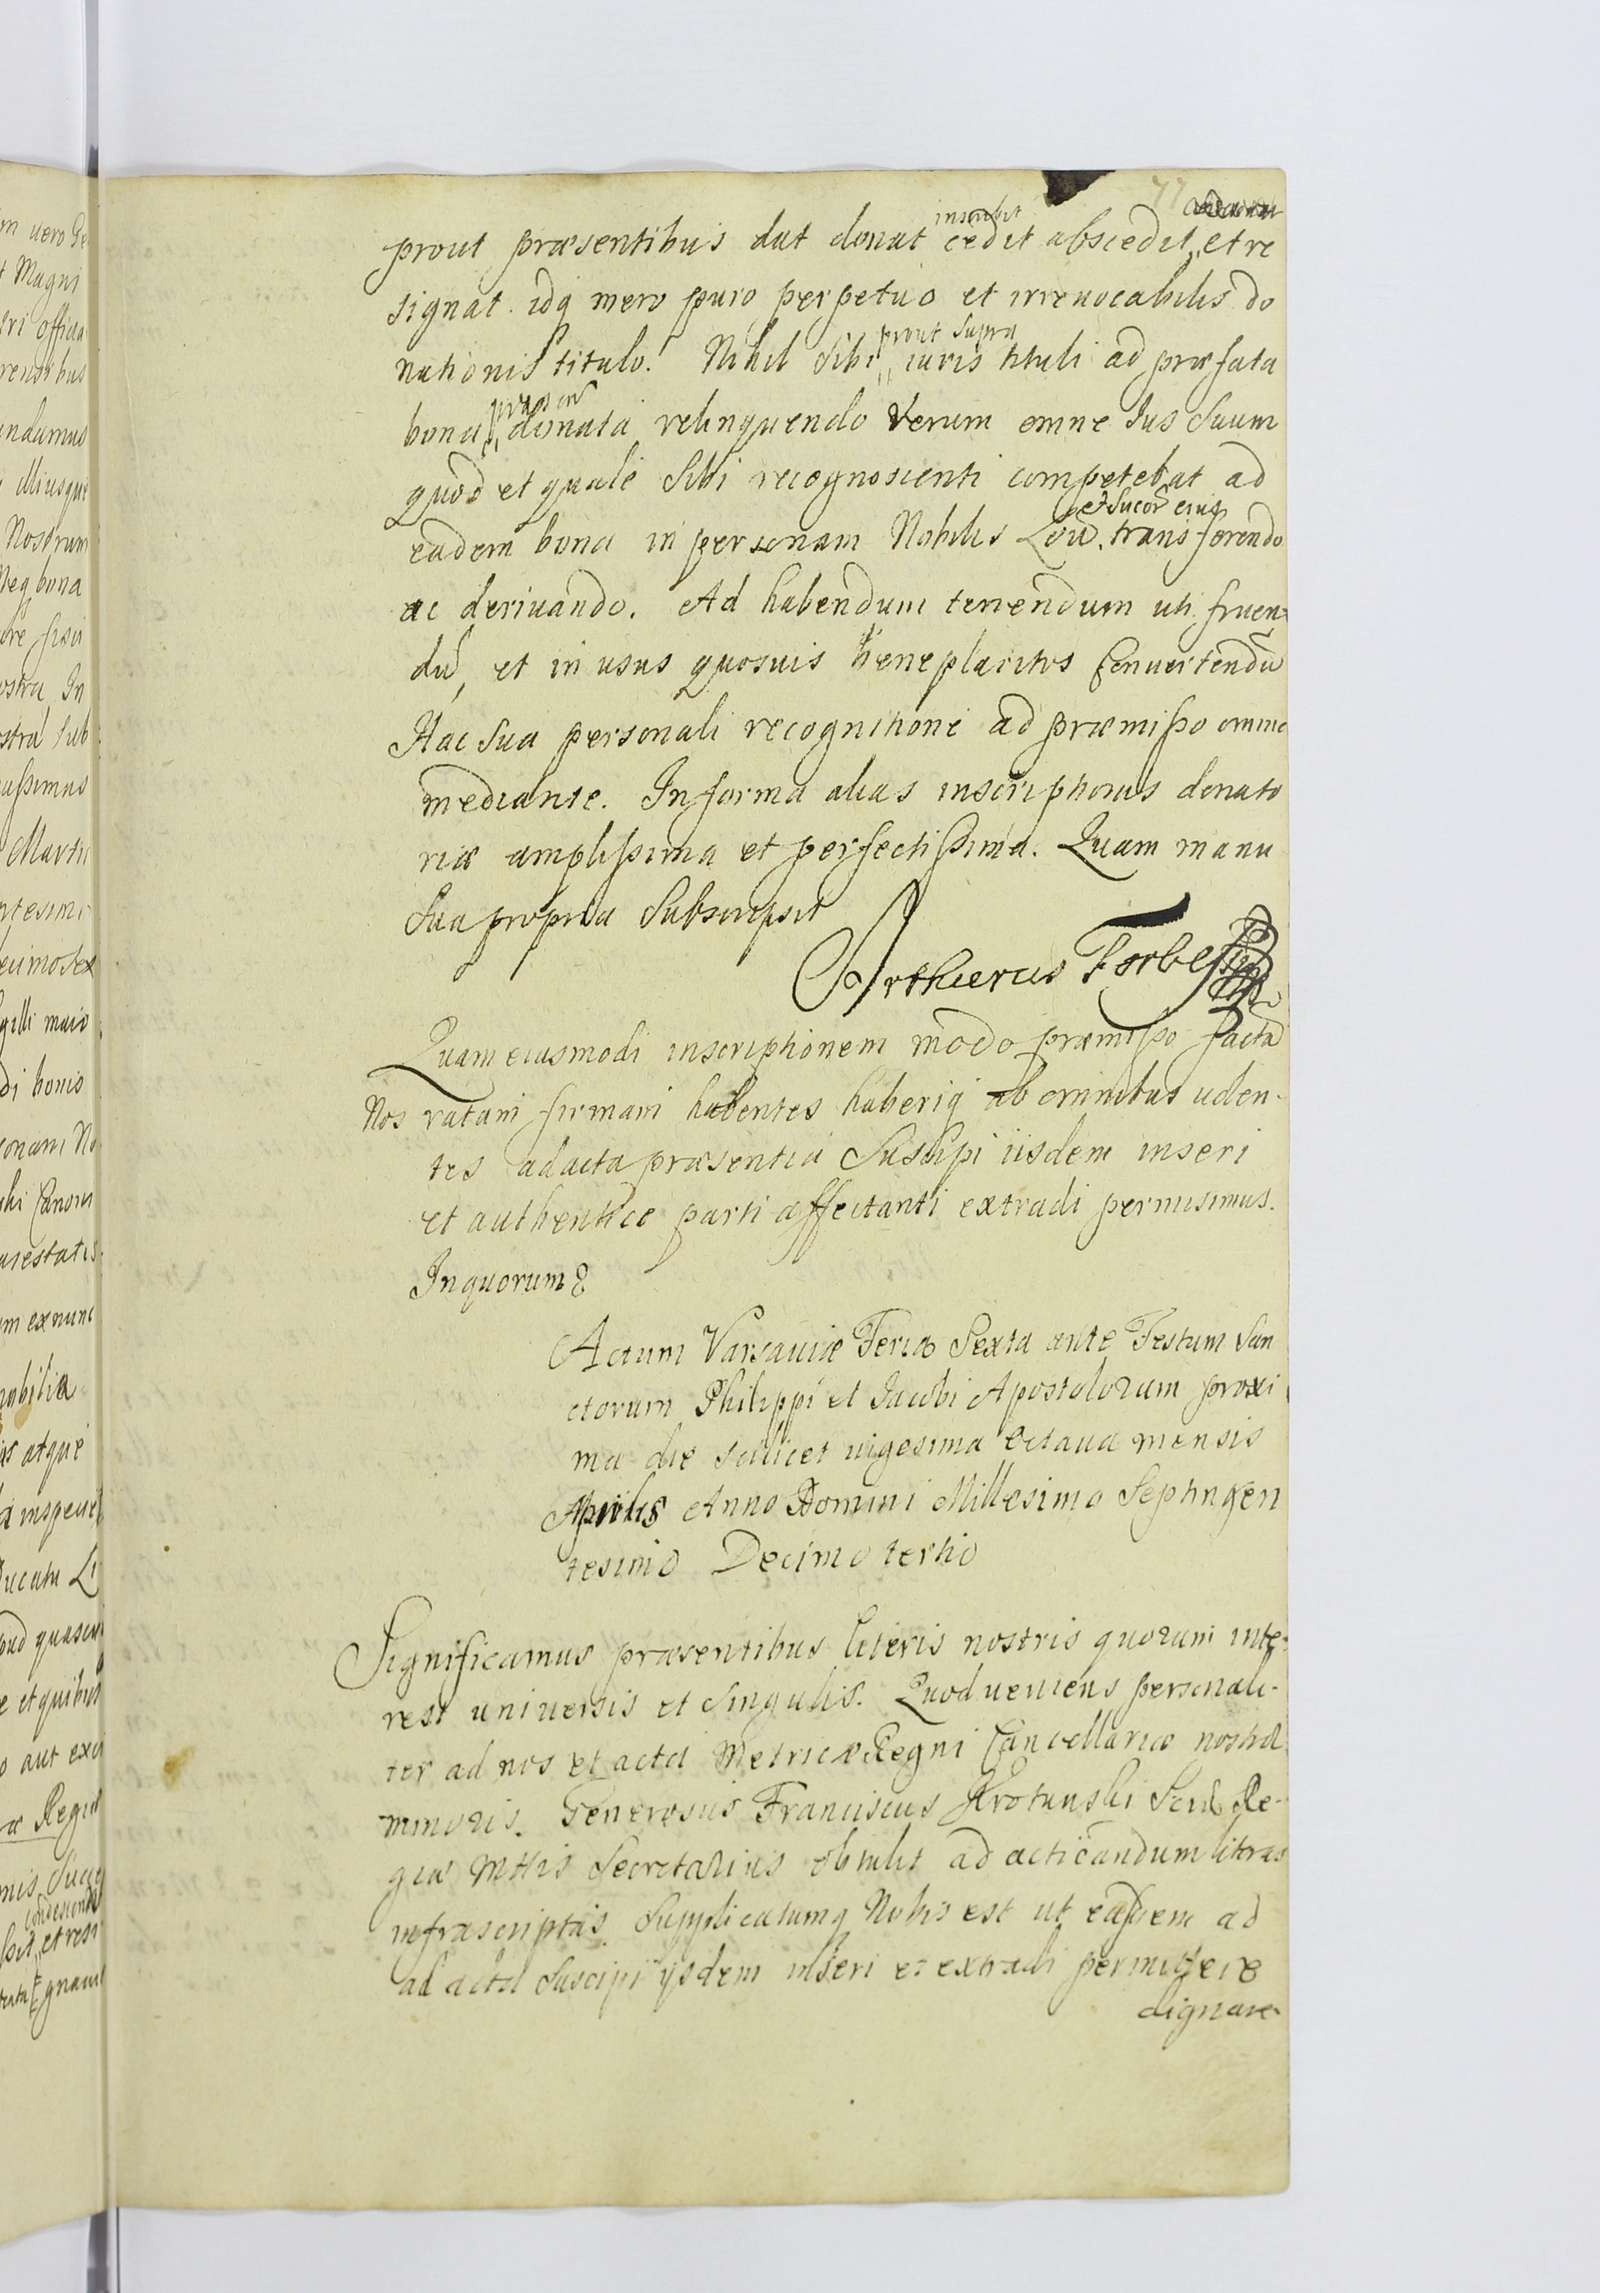 77
inscribit
prout præsentibus dat donat cedit abscedit, et re
signat. idq mero puro perpetuo et irreuocabilis do
prout supra
nationis titulo. Nihil sibi iuris tituli ad præfata
bona donata relinquendo Verum omne Ius Suum
quod et quale Sibi recognoscenti competebat ad
et Succor eius
eadem bona in personam Nobilis transferendo
ac deriuando. Ad habendum tenendum uti fruen=
dũ, et in usus quosuis beneplacitos Conuertendũ
Hac Sua personali recognitione ad præmißo
mediante. In forma alias inscriptionis donato
riæ amplißima et perfectißima. Quam manu
Sua propria Subscripsit
Arthuerus Forbes
Quam eiusmodi inscriptionem modo præmißo factã
Nos ratam firmam habentes haberiq ab omnibus uolen-
tes ad acta præsentia Suscipi iisdem inseri
et authentice parti affectanti extradi permisimus.
In quorum &
Actum Varsauiæ Feria Sexta ante Festum San
ctorum Philippi et Jacobi Apostolorum proxi
ma die scilicet uigesima octaua mensis
Aprilis Anno Domini Millesimo Septingen
tesimo Decimo tertio
Significamus præsentibus literis nostris quorum inte=
rest uniuersis et Singulis. Quod ueniens personali-
ter ad nos et acta Metricæ Regni Cancellariæ nostræ
minoris. Generosus Franciscus Re-
giæ Mttis Secretarius obtulit ad acticandum litras
infrascriptas. Supplicatumq Nobis est ut easdem ad
ad acta Suscipi ijsdem inseri et extradi permittere
dignare-